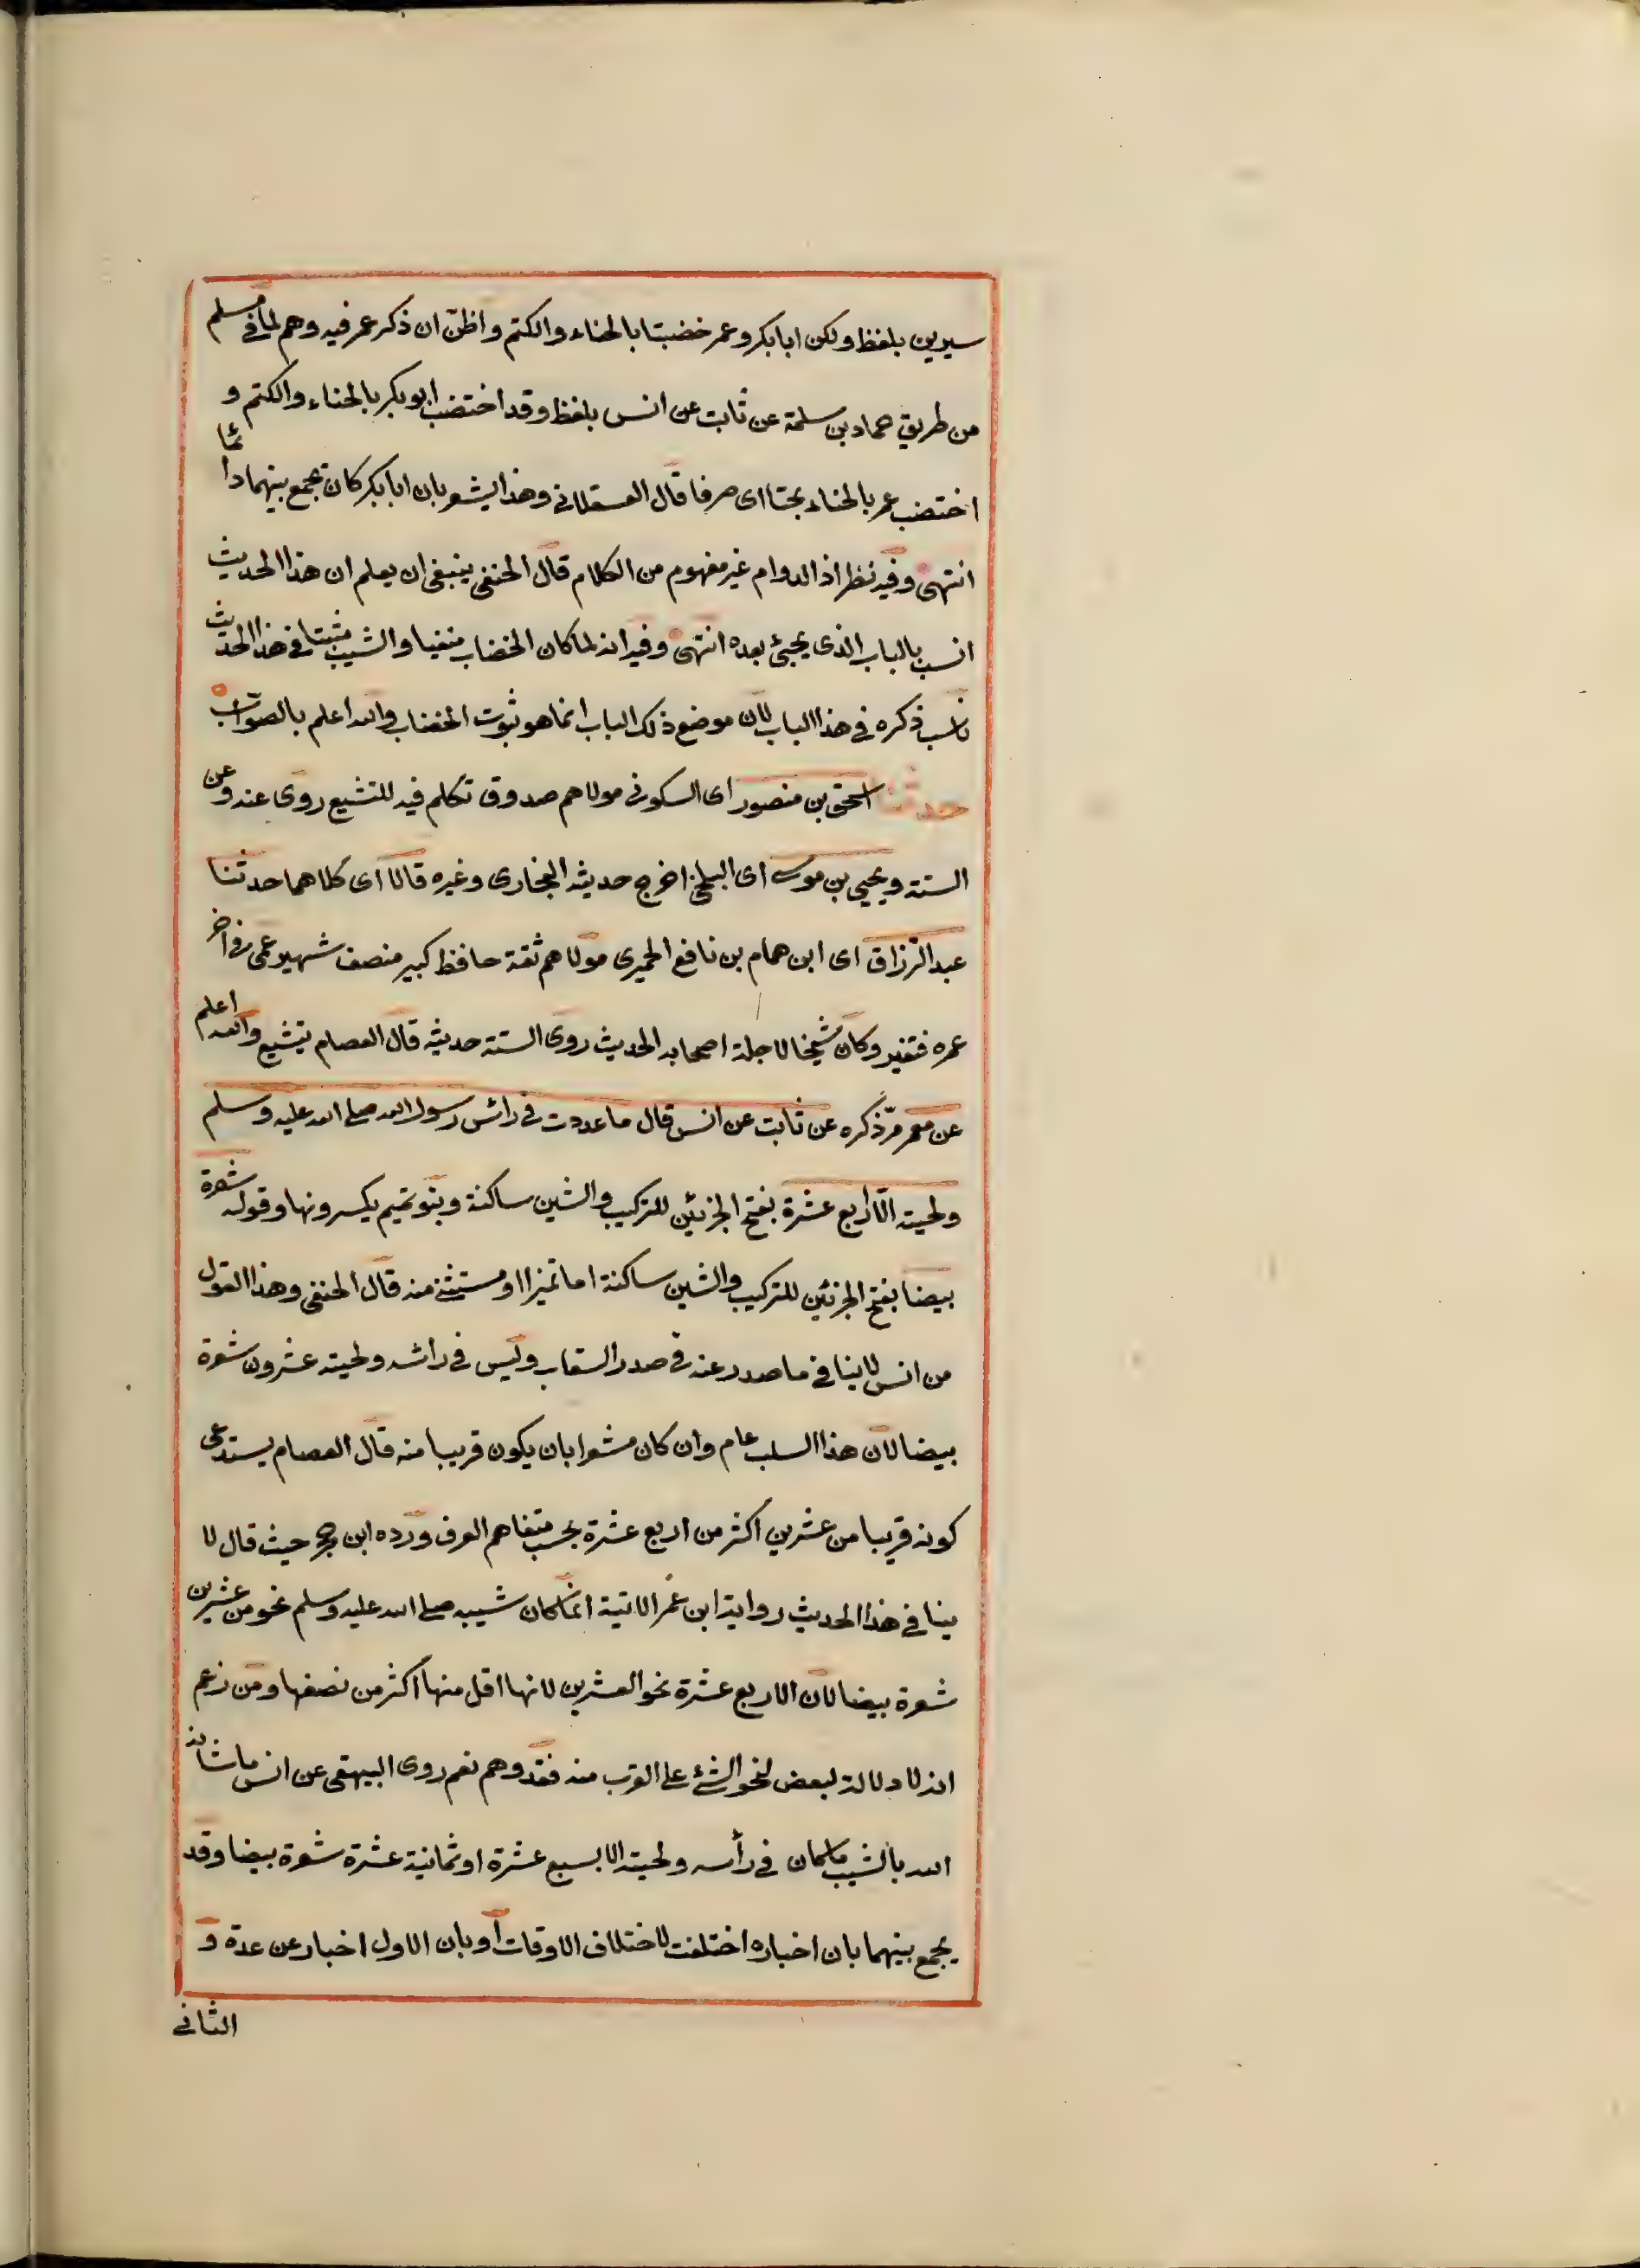 سيرين بلفظ ولكن ابا بكر وعمر خضبتا بالحناء والكتم واظن ان ذكر عمر فيه وهم لما في مسلم
من طريق حماد بن سلمة عن ثابت عن انس بلفظ وقد اختضب ابو بكر بالحناء والكتم و
اختضب عمر بالحناء بحتا اى صرفا قال العسقلانى وهذا يشعر بان ابا بكر كان يجمع بينهما دائما
انتهى وفيه نظر اذ الدوام غير مفهوم من الكلام قال الحنفى ينبغى ان يعلم ان هذا الحديث
انسب بالباب الذى يجيئ بعده انتهى وفيه انه لما كان الخضاب منفيا والشيب مثبتا فى هذا الحديث
ناسب ذكره فى هذا الباب لان موضع ذلك الباب انما هو ثبوت الخضاب والله اعلم بالصواب
حدثنا اسحق بن منصور اى السكونى مولاهم صدوق تكلم فيه للتشيع روى عنه وعن
الستة ويحيى بن موسى اى البلخى اخرج حديثه البخارى وغيره قالا اى كلاهما حدثنا
عبد الرزاق اى ابن همام بن نافع الحميرى مولاهم ثقة حافظ كبير منصف شهير عمى فى اخر
عمره فتغير وكان شيخا لاجلة اصحاب الحديث روى الستة حديثه قال العصام يتشيع والله اعلم
عن معمر مر ذكره عن ثابت عن انس قال ما عددت فى رائس رسول الله صلى الله عليه وسلم
ولحيته الا اربع عشرة بفتح الجزئين للتركيب والشين ساكنة وبنو تميم يكسرونها وقوله شعرة
بيضا بفتح الجزئين للتركيب والشين ساكنة اما تميزا او مستثنى منه قال الحنفى وهذا القول
من انس لا ينافى ما صدر عنه فى صدر السقاب وليس فى رائسه ولحيته عشرون شعرة
بيضا لان هذا السلب عام وان كان مشعرا بان يكون قريبا منه قال العصام يستدعى
كونه قريبا من عشرين اكثر من اربع عشرة بحسب متفاهم العرف ورده ابن حجر حيث قال لا
ينافى هذا الحديث رواية ابن عمر الاتية انما كان شيبه صلى الله عليه وسلم نحو من عشرين
شعرة بيضا لان الاربع عشرة نحو العشرين لانها اقل منها اكثر من نصفها ومن زعم
انه لا دلالة لبعض لنحو الشئ على القرب منه فقد وهم نعم روى البيهقى عن انس ما شانه
الله بالشيب ما كان فى رأسه ولحيته الا بسبع عشرة او ثمانية عشرة شعرة بيضا وقد
يجمع بينهما بان اخباره اختلفت لاختلاف الاوقات او بان الاول اخبار عن عدة و
الثانى